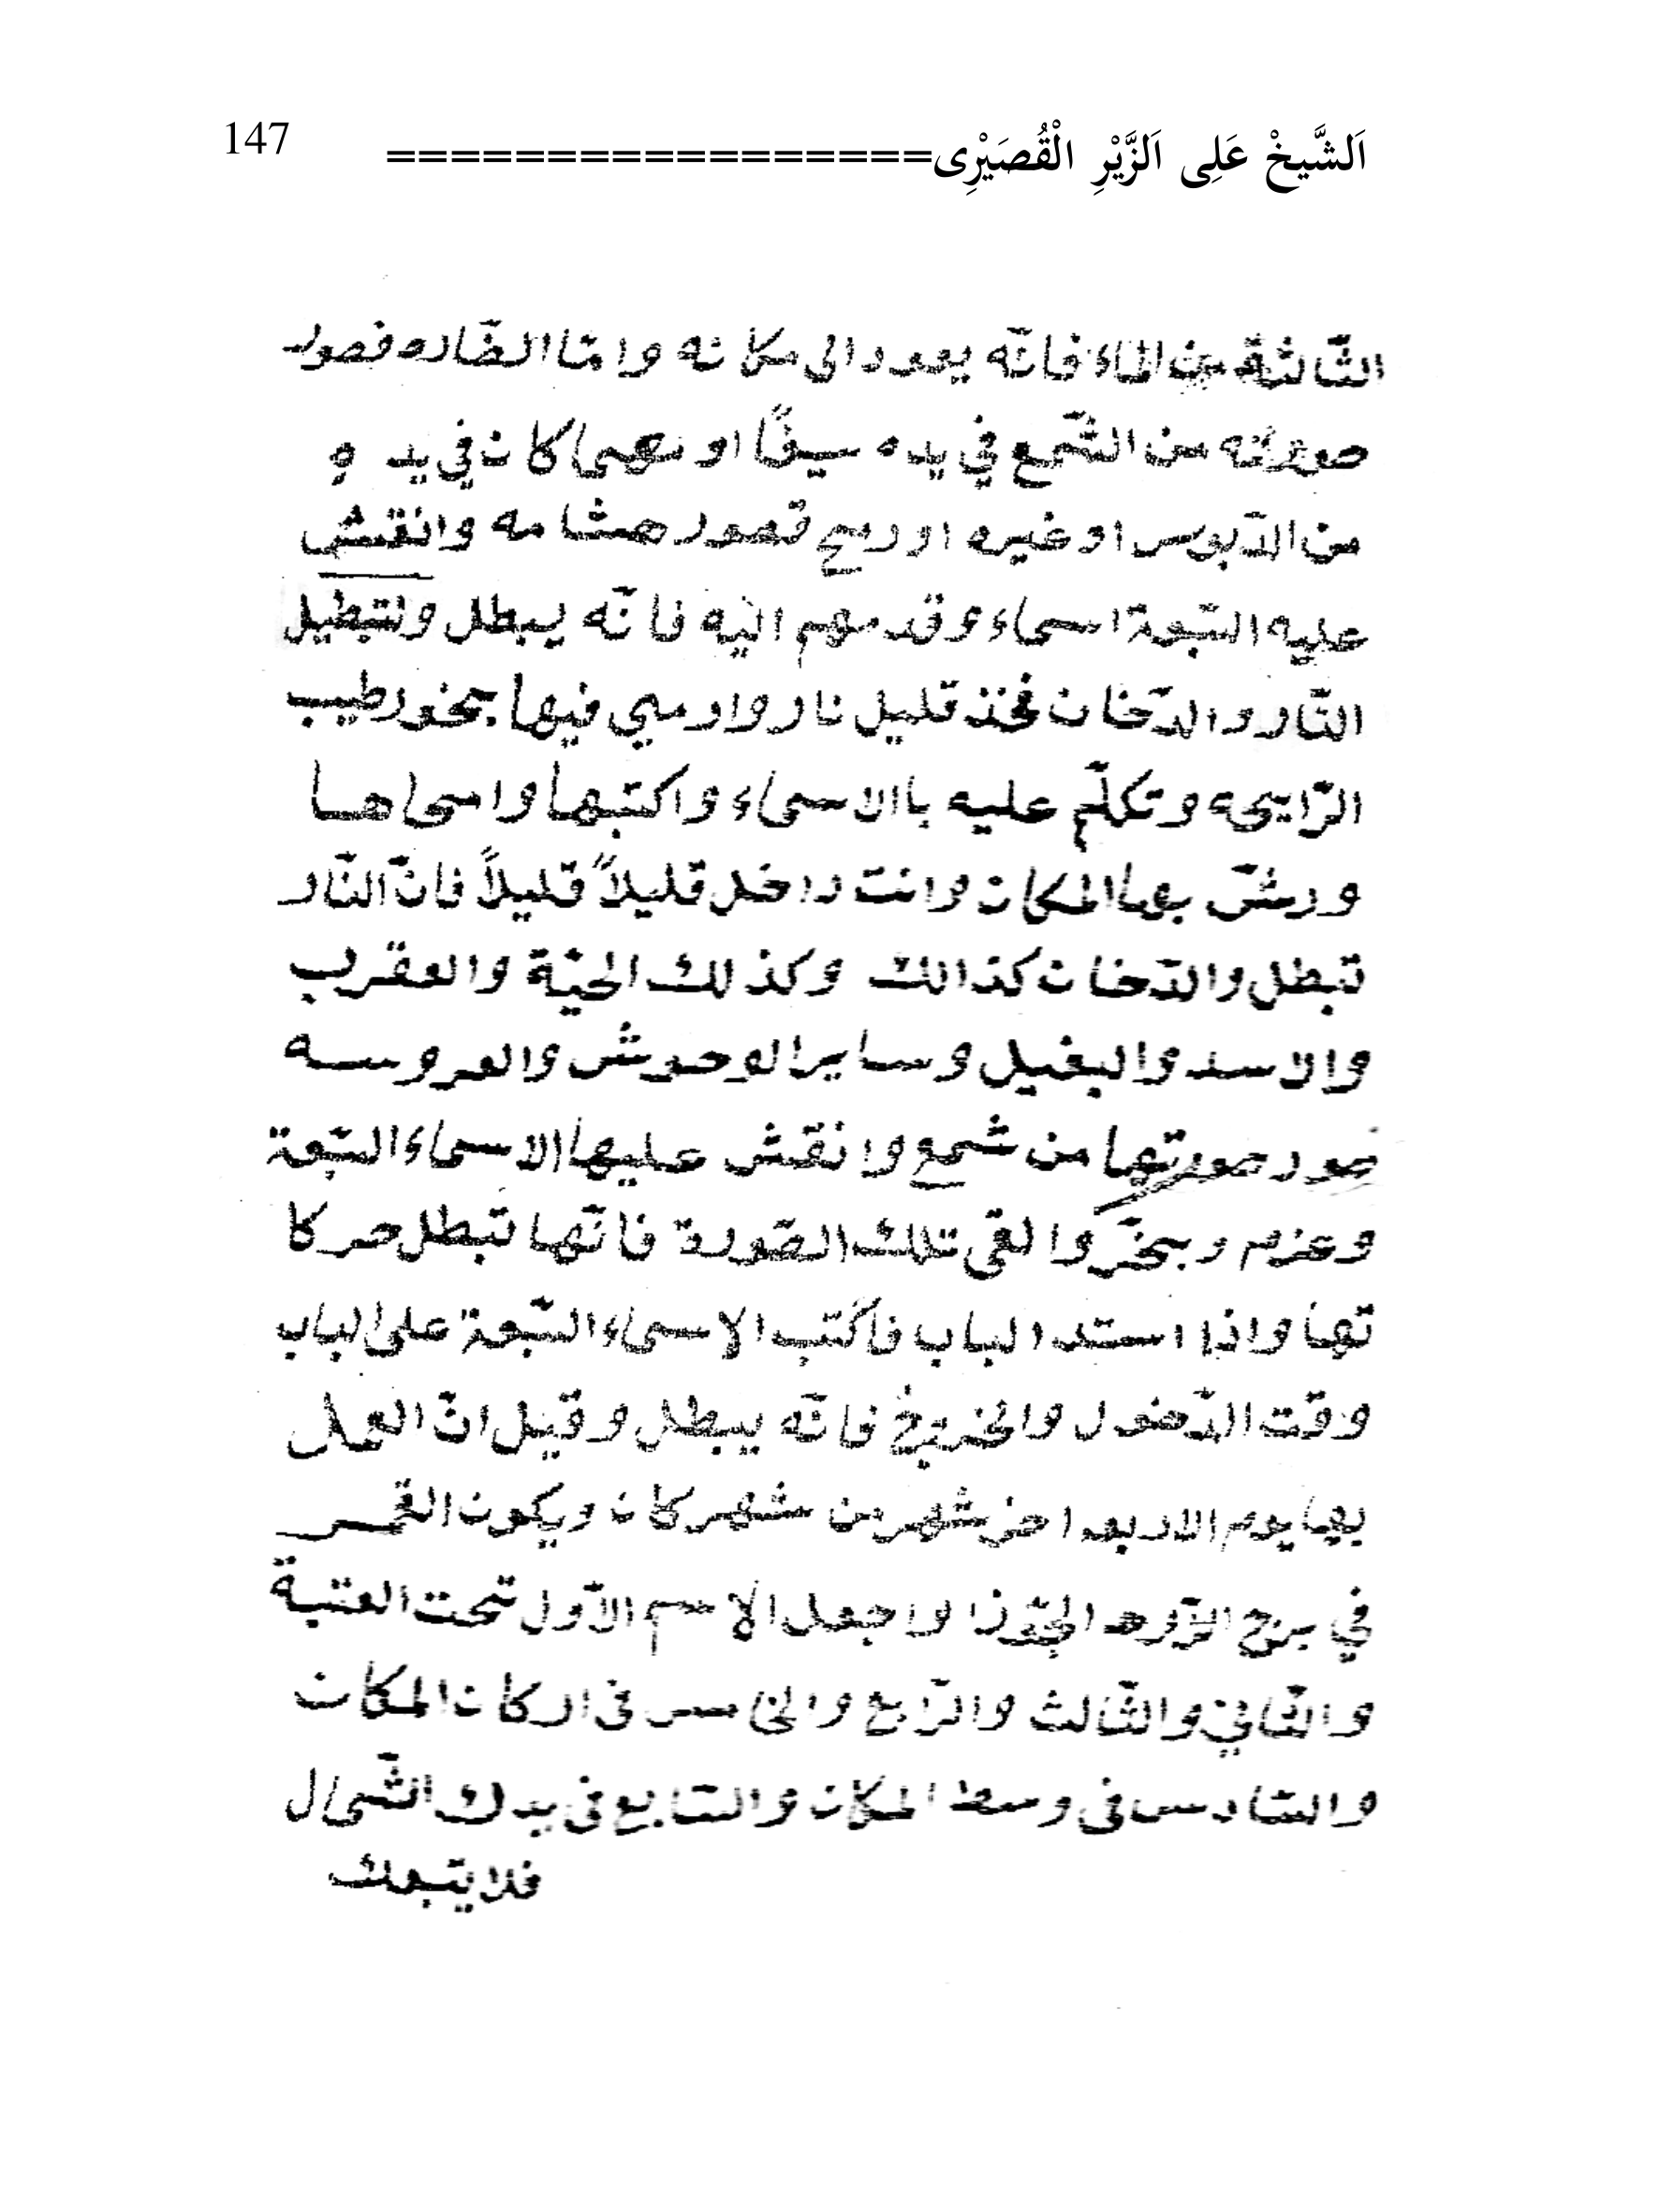 اَلشَّيخْ عَلِى اَلزَّيْرِ الْقُصَيْرِى================= 147
الثّالثة من الماء فانّه يعود الى مكانه وامّا الضّاره فصور
صورته من الشّمع في يده سيفًا او مهما كان في يده
من الدّبوس او غيره او رمح تصور مثله وانقش
عليه السّبعة اسماء وقدمهم اليه فانّه يبطل ولتبطيل
النّار والدّخان فخذ قليل نار واومي فيها بخور طيب
الرّايحه وتكلّم عليه باالاسماء واكتبها وامحاها
ورشّ بها المكان وانت داخل قليلاً قليلاً فانّ النّار
تبطل والدّخان كذالك وكذلك الحيّة والعقرب
والاسد والبغيل وساير الوحوش والعروسه
صور صورتها من شمع وانقش عليها الاسماء السّبعة
وعزم وبخّر والقى تلك الصّورة فانّها تبطل حركا
تها واذا استد الباب فأكتب الاسماء السّبعة على الباب
وقت الدّخول والخروج فانّه يبطل وقيل انّ العمل
بها يوم الاربعه اخر شهر من شهر كان ويكون القمر
في برج الجّوزا واجعل الاسم الاّول تحت العتبة
والثّاني والثّالث والرّابع والخامس فى اركان المكان
والسّادس فى وسط المكان والسّابع فى يدك الشّمال
فلا يتبعك